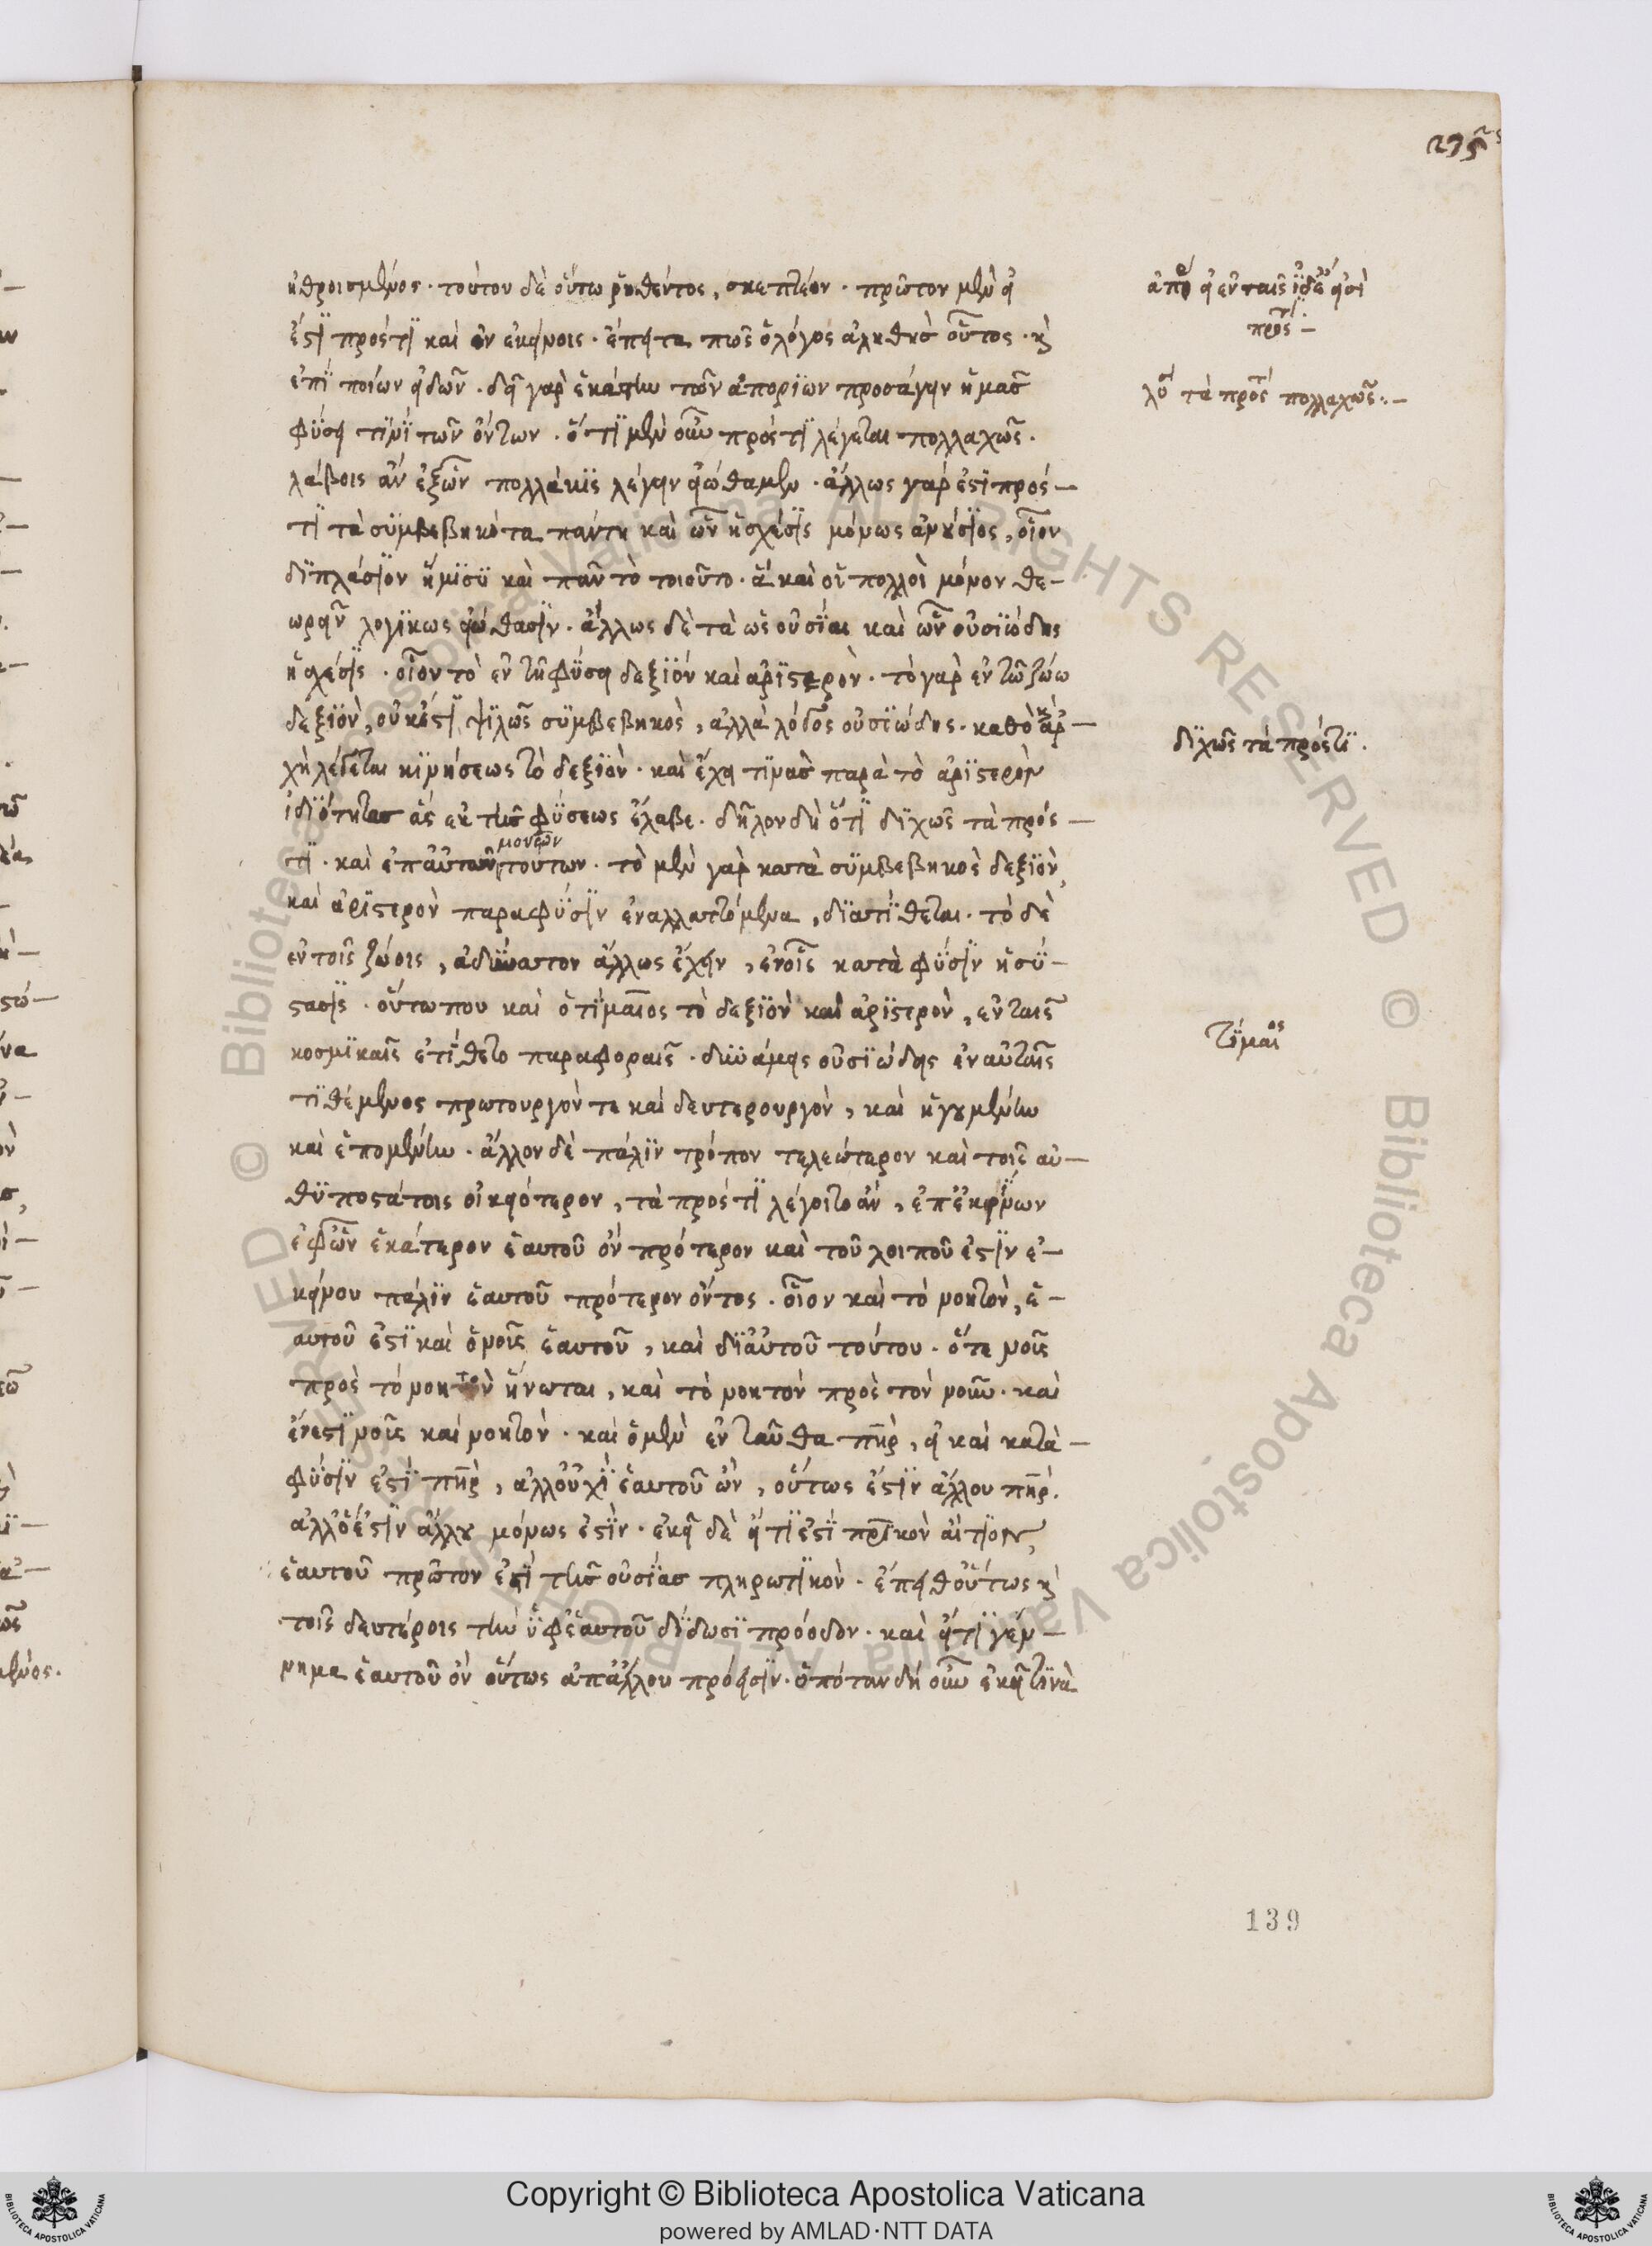 ἠθροισμένος · τούτου δὲ οὕτω ῥηθέντος, σκεπτέον · πρῶτον μὲν εἰ
ἔστι πρός τι καὶ ἐν ἐκείνοις · ἔπειτα πῶς ὁ λόγος ἀληθὴς οὗτος · κ
ἐπὶ ποίων εἰδῶν · δεῖ γὰρ ἑκάστην τῶν ἀποριῶν προσάγειν ἡμᾶς
φύσει τινὶ τῶν ὄντων · ὅτι μὲν οὖν πρός τι λέγεται πολλαχῶς ·
λάβοις ἂν ἐξ ὧν πολλάκις λέγειν εἰώθαμεν · ἄλλως γάρ ἐστι πρός—
τι τὰ συμβεβηκότα πάντη καὶ ὧν ἡ σχέσις μόνως ἀνούσιος, οἷον
διπλάσιον ἥμισυ καὶ πᾶν τὸ τοιοῦτο · ἃ καὶ οἱ πολλοὶ μόνον θε—
ωρεῖν λογικῶς εἰώθασιν · ἄλλως δὲ τὰ ὡς οὐσίαι καὶ ὧν οὐσιώδης
ἡ σχέσις · οἷον τὸ ἐν τῇ φύσει δεξιὸν καὶ ἀριστερὸν · τὸ γὰρ ἐν τῶ ζώω
δεξιὸν, οὐκ ἔστι ψιλῶς συμβεβηκὸς, ἀλλὰ λόγος οὐσιώδης · καθὸ κ ἀρ—
χὴ λέγεται κινήσεως τὸ δεξιὸν · καὶ ἔχει τινὰς παρὰ τὸ ἀριστερὸν
ἰδιότητας ἃς ἐκ τῆς φύσεως ἔλαβε · δῆλον δὴ ὅτι διχῶς τὰ πρός—
τι · καὶ ἐπ αὐτῶν μονων τούτων · τὸ μὲν γὰρ κατὰ συμβεβηκὸς δεξιὸν,
καὶ ἀριστερὸν παρα φύσιν ἐναλλαττόμενα, διατίθεται · τὸ δὲ
ἐν τοῖς ζώοις, ἀδύνατον ἄλλως ἔχειν, ἐν οἷς κατὰ φύσιν ἡ σύ—
στασις · οὕτω που καὶ ὁ τίμαιος τὸ δεξιὸν καὶ ἀριστερὸν, ἐν ταῖς
κοσμικαῖς ἐτίθετο παραφοραῖς · δυνάμεις οὐσιώδεις ἐν αὐταῖς
τιθέμενος πρωτουργὸν τε καὶ δευτερουργὸν, καὶ ἡγουμένην
καὶ ἑπομένην · ἄλλον δὲ πάλιν τρόπον τελεώτερον καὶ τοῖς αὐ—
θυποστάτοις οἰκειότερον, τὰ πρός τι λέγοιτο ἂν, ἐπ ἐκείνων
ἐφ ὧν ἑκάτερον ἑαυτοῦ ὂν πρότερον καὶ τοῦ λοιποῦ ἐστὶν ἐ—
κείνου πάλιν ἑαυτοῦ πρότερον ὄντος · οἷον καὶ τὸ νοητὸν, ἑ—
αυτοῦ ἐστὶ καὶ ὁ νοῦς ἑαυτοῦ, καὶ δι αὐτοῦ τούτου · ὅ τε νοῦς
πρὸς τὸ νοητὸν ἥνωται, καὶ τὸ νοητὸν πρὸς τὸν νοῦν · καὶ
ἕν ἐστι νοῦς καὶ νοητὸν · καὶ ὁ μὲν ἐνταῦθα πηρ, εἰ καὶ κατὰ—
φύσιν ἐστὶ πηρ, ἀλλ οὐχὶ ἑαυτοῦ ὢν, οὕτως ἐστὶν ἄλλου πηρ ·
ἀλλ ὅ ἐστιν ἄλλου μόνως ἐστὶν · ἐκεῖ δὲ εἴ τι ἐστὶ πρικὸν αἴτιον,
ἑαυτοῦ πρῶτον ἐστὶ τῆς οὐσίας πληρωτικὸν · ἔπειθ οὕτως κ
τοῖς δευτέροις τὴν ὑφ ἑαυτοῦ δίδωσι πρόοδον · καὶ εἴ τι γέν—
νημα ἑαυτοῦ ὂν οὕτως ἀπ ἄλλου πρόεισιν · ὁπόταν δὴ οὖν ἐκεῖ τινὰ
ἀπο εἰ ἐν ταῖς ἰδέ εἰσὶ
πρός τι —
λυ τὰ πρός τι πολλαχῶς · —
διχῶς τὰ πρός τι ·
τίμαιος
139
Copyright © Biblioteca Apostolica Vaticana
powered by AMLAD·NTT DATA